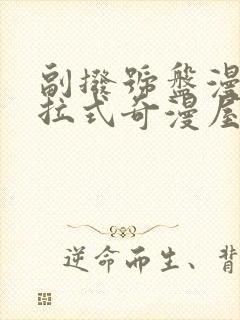 副撥號盤漫
拉式奇漫屋
逆命而生、背